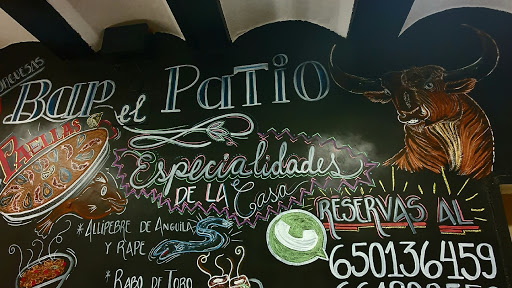 Bar el Patio
Paellas
Especialidades
de la Casa
* Allipebre de Anguila
y Rape
* Rabo de Toro
Reservas al
650136459